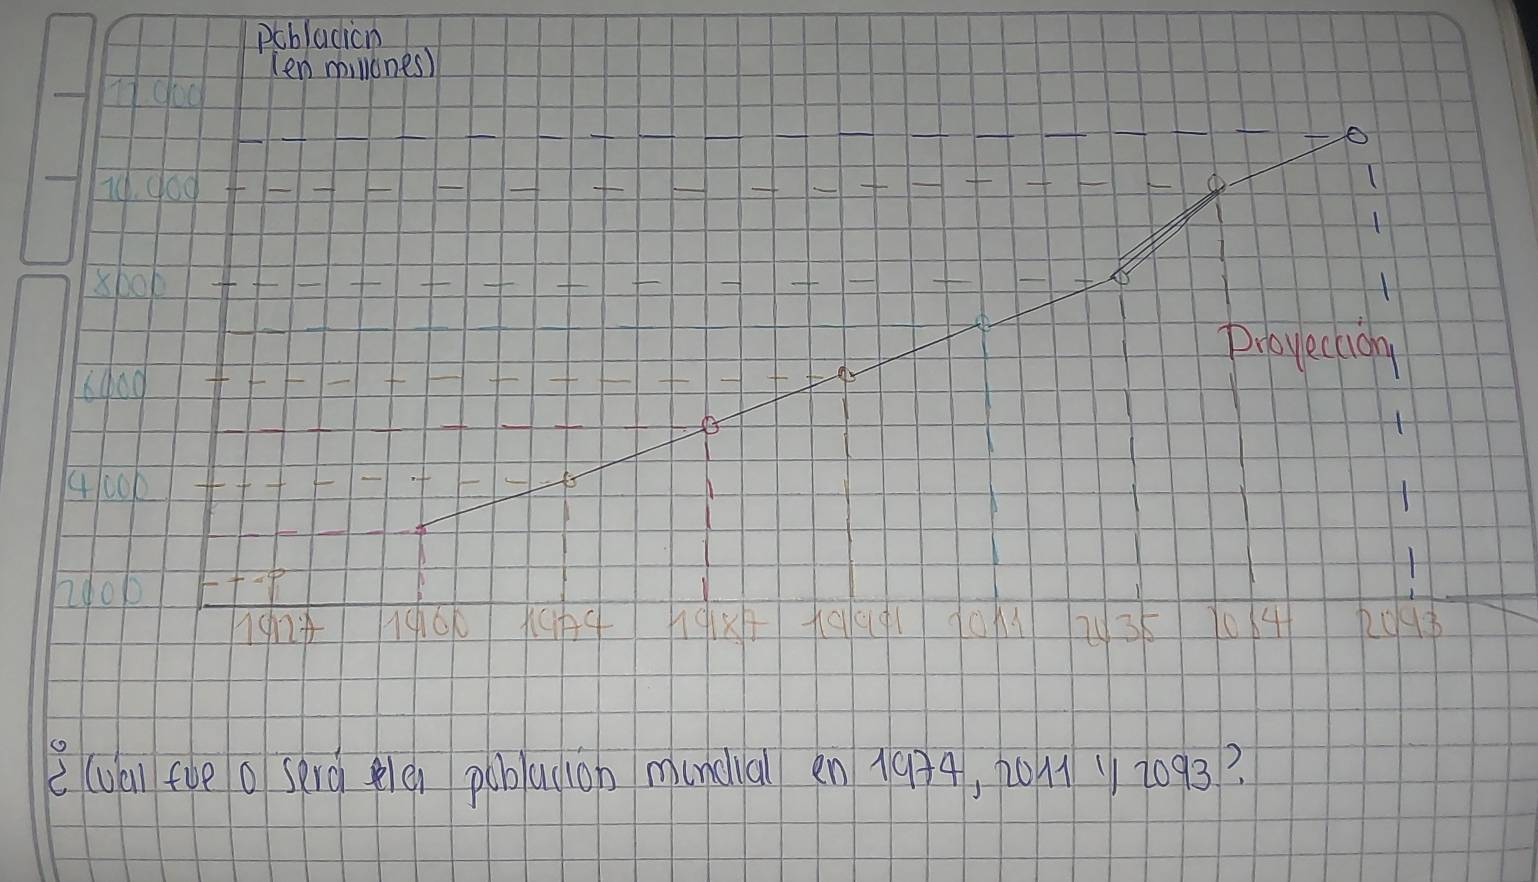 Población
(en millones)
12.000
10.000
8000
6000
4000
2000
Proyección
1927 1960 1974 1987 1999 2011 2035 2054 2093
¿Cuál fue o será la población mundial en 1974, 2011 y 2093?